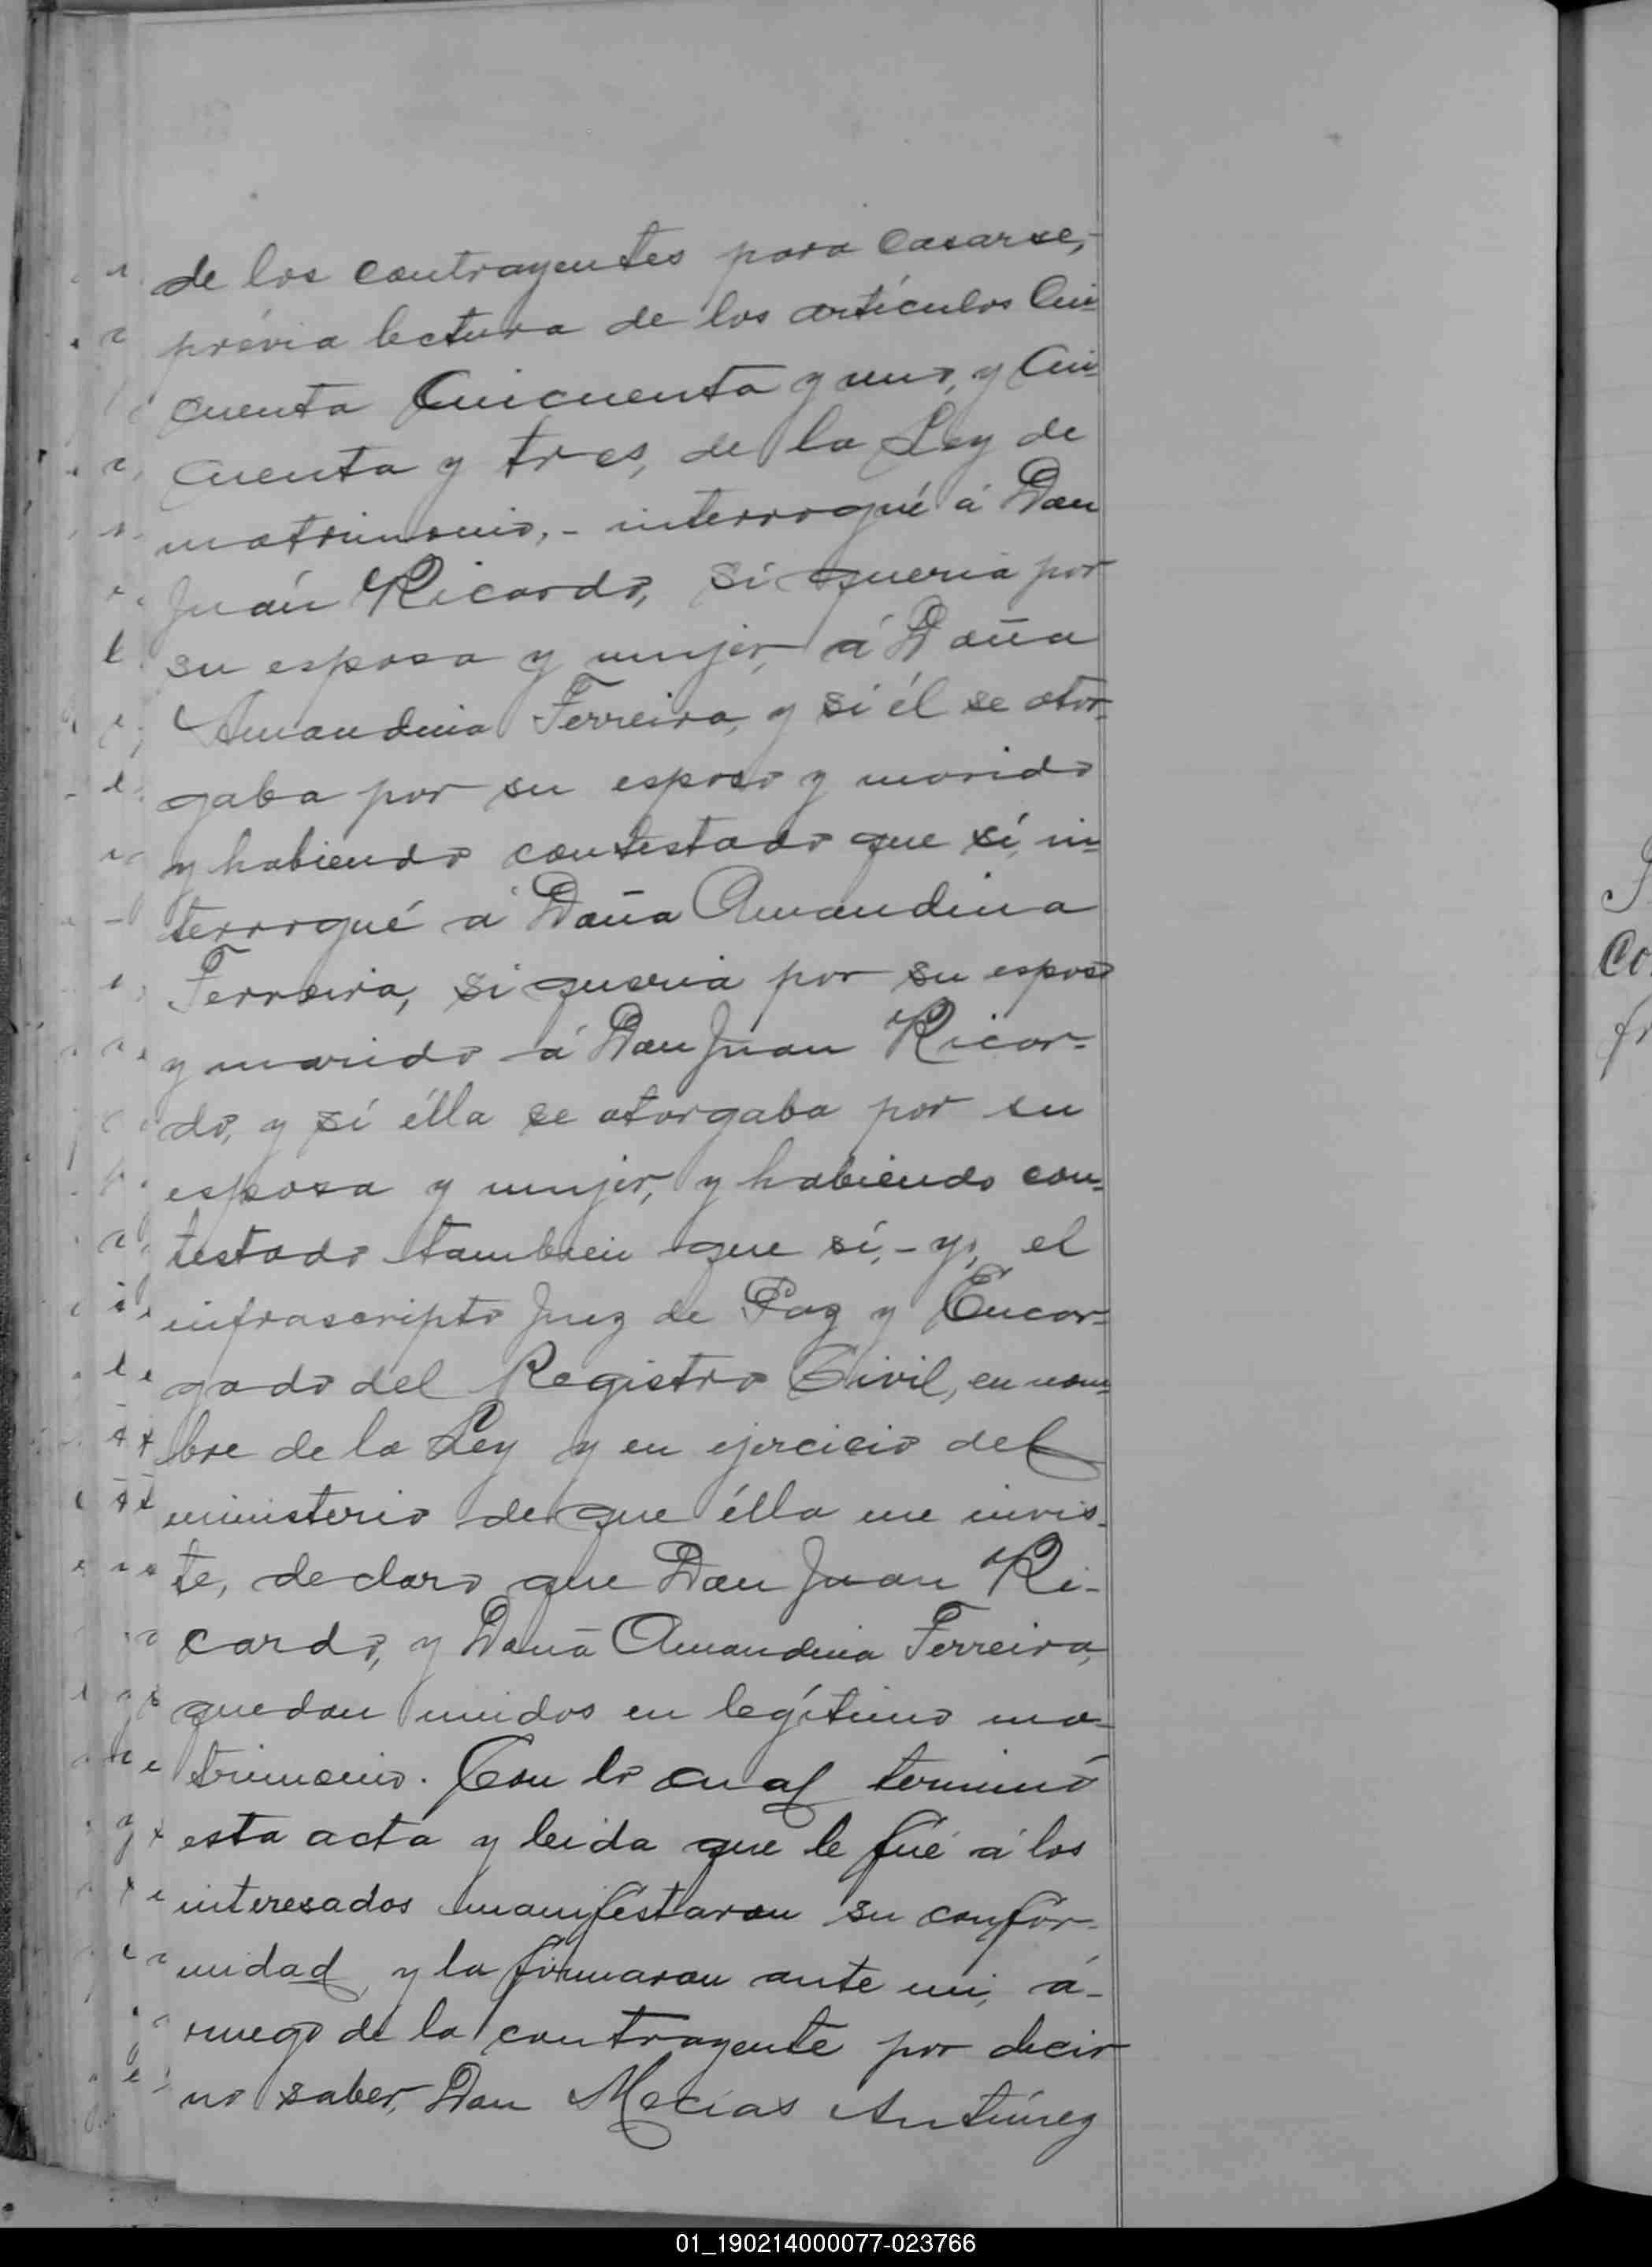 de los contrayentes para casarse,-
prévia lectura de los artículos Cin-
cuenta Cincuenta y uno, y Cin-
cuenta y tres, de la Ley de
matrimonio,- interrogué á Don
Juán Ricardo, si queria por
su esposa y mujer, á Doña
Amandina Ferreira, y si él se otor-
gaba por su esposo y marido
y habiendo contestado que sí, in-
terrogué á Doña Amandina
Ferreira, si queria por su esposo
y marido á Don Juan Ricar-
do, y si élla se otorgaba por su
esposa y mujer, y habiendo con-
testado tambien que sí,- yo, el
infrascripto Juez de Paz y Encar-
gado del Registro Civil, en nom-
bre de la Ley y en ejercicio del
ministerio de que élla me invis-
te, declaro que Don Juan Ri-
cardo, y Doña Amandina Ferreira,
quedan unidos en legítimo ma-
trimonio. Con lo cual terminó
esta acta y leida que le fué á los
interesados manifestaron su confor-
midad, y la firmaron ante mi, á-
ruego de la contrayente por decir
no saber, Don Mecías Antúnez
01_190214000077-023766